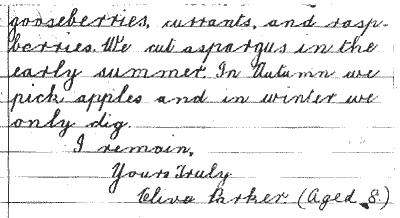 gooseberries, currants, and rasp-
berries. We cut aspargus in the
early summer. In Autumn we
pick apples and in winter we
only dig.
I remain,
Yours Truly
Oliva Parker (Aged 8.)